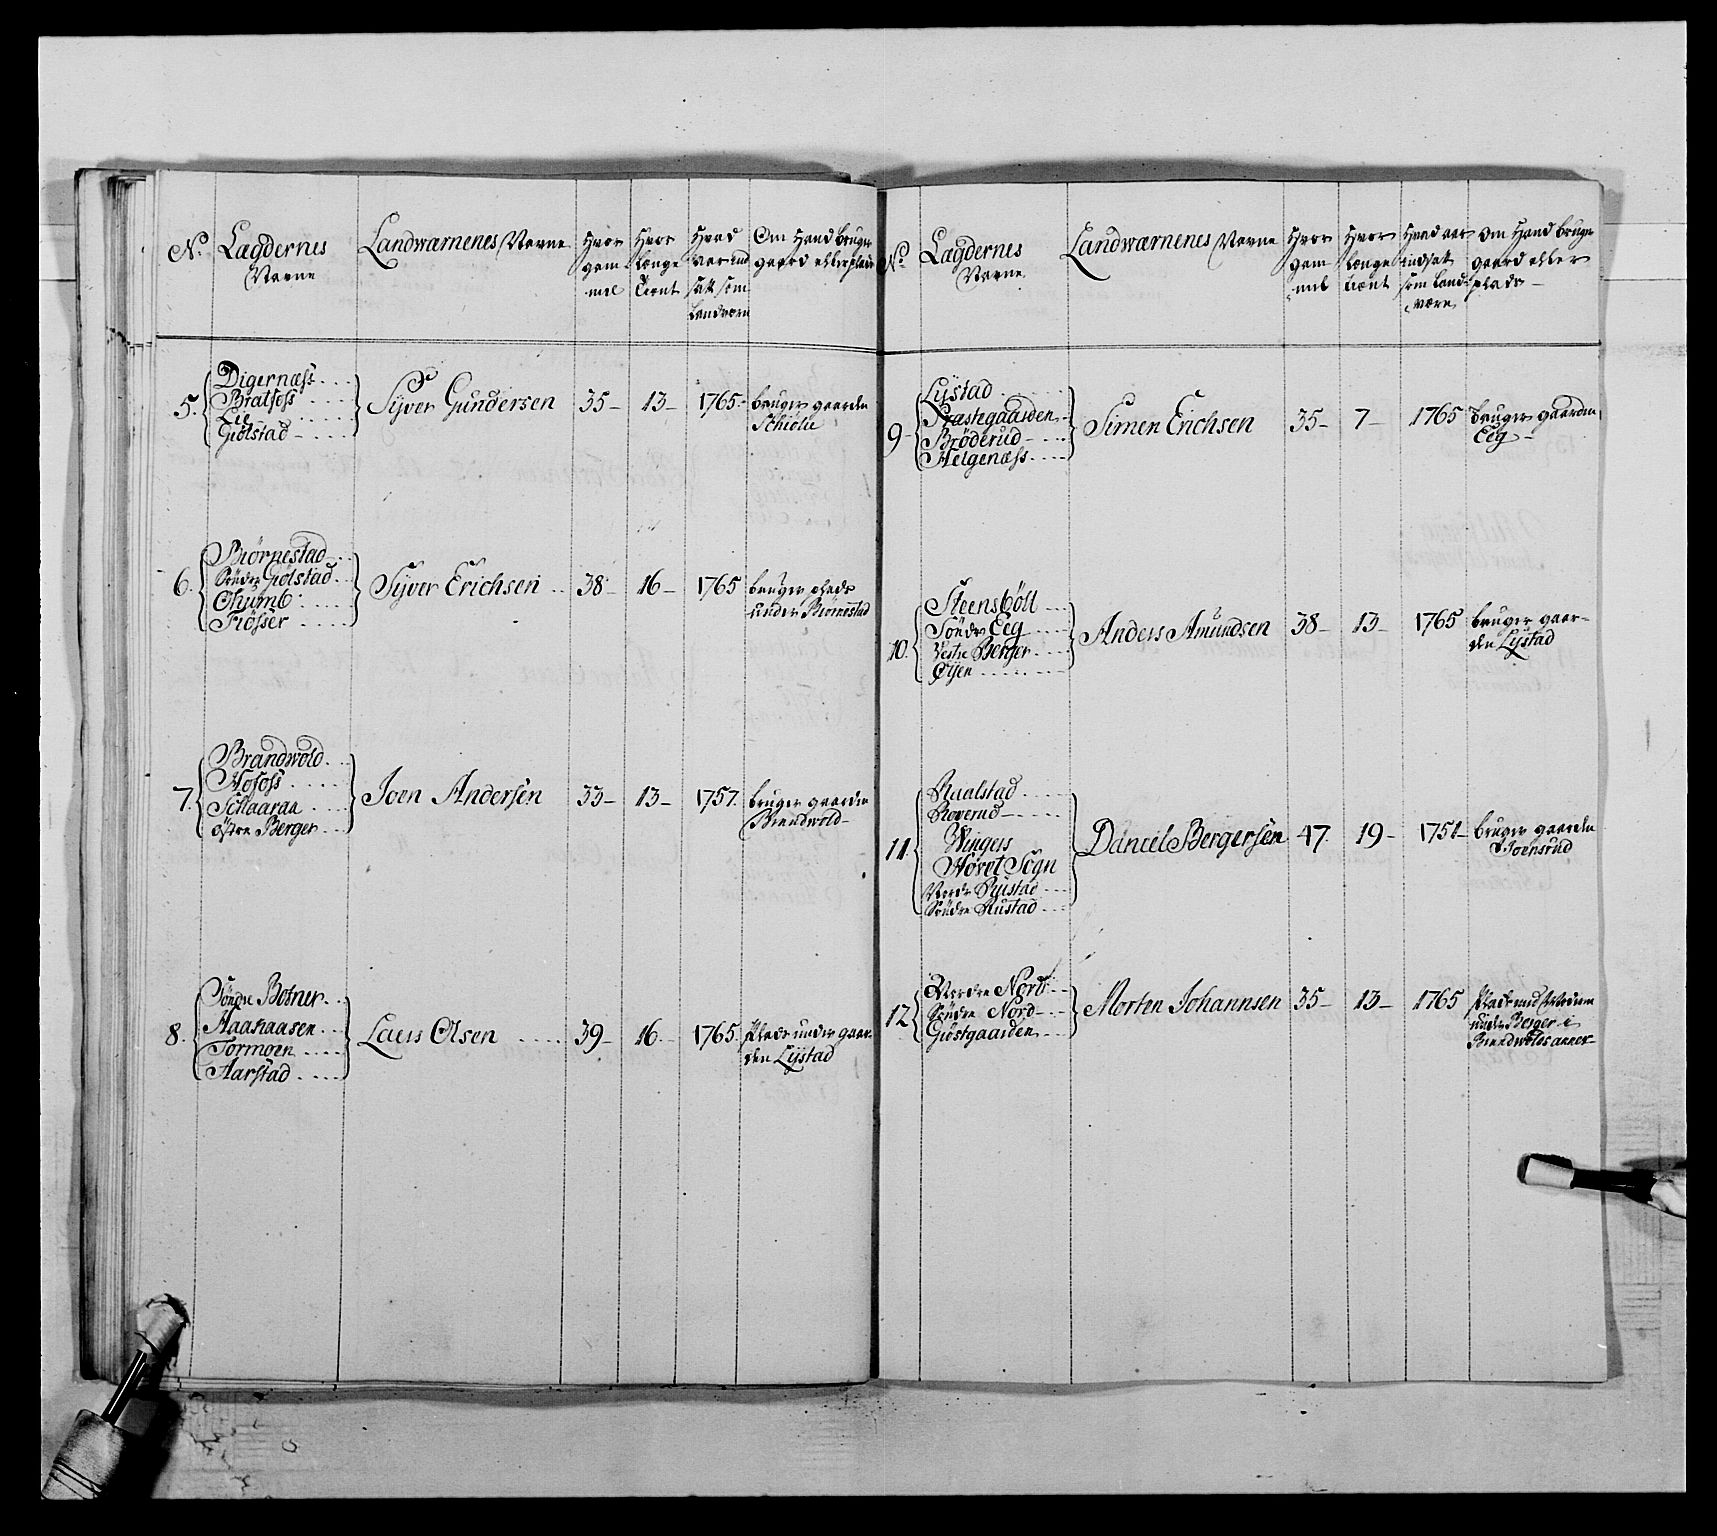 No. Lægdernes Navne
Landwærnenes Navne
Hvor gam mel
Hvor længe tient
Hvad aar ind satt som Landværn
Om Hand bruger gaard eller plads
5. Digernæss
Bratfoss
Lie
Giölstad
Syver Gundersen 35 13 1765 bruger gaarden
Schiölie
6. Biörnestad
Söndre Giölstad
Thumb
Fiösser
Syver Erichsen 38 16 1765 bruger plads
under Biörnestad
7. Brandwold
Nofoss
Schaaraa
östre Berger
Joen Andersen 33 13 1757. bruger gaarden
Brandwold
8. Söndre Botner
Aaahaasen
Tormoen
Aarstad
Laers Olsen 39 16 1765 Plads under gaar-
den Lystad
No. Lægdernes Navne
Landwærnenes Navne
Hvor gam mel
Hvor længe tient
Hvad aar indsat som Land værn
Om Hand bruger gaard eller plads
9 Lystad
Præstegaarden
Bröderud
Helgenæss
Simen Erichsen 35 7 1765 bruger gaarden
Eeg
10. Steensbött
Söndre Eeg
Vestre Berger
Öyen
Anders Amundsen 38 13 1765 bruger gaar-
den Lystad
11. Raalstad
Roverud
Wingers
Høvet Sogn
Nordre Rustad
Söndre Rustad
Daniel Bergersen 47. 19 1751 bruger gaarden
Joensrud
12 Nordre Nord
Söndre Nord
Giöstgaarden
Morten Johannsen 35 13 1765 Plads
under Berger i
Brandwolds anner